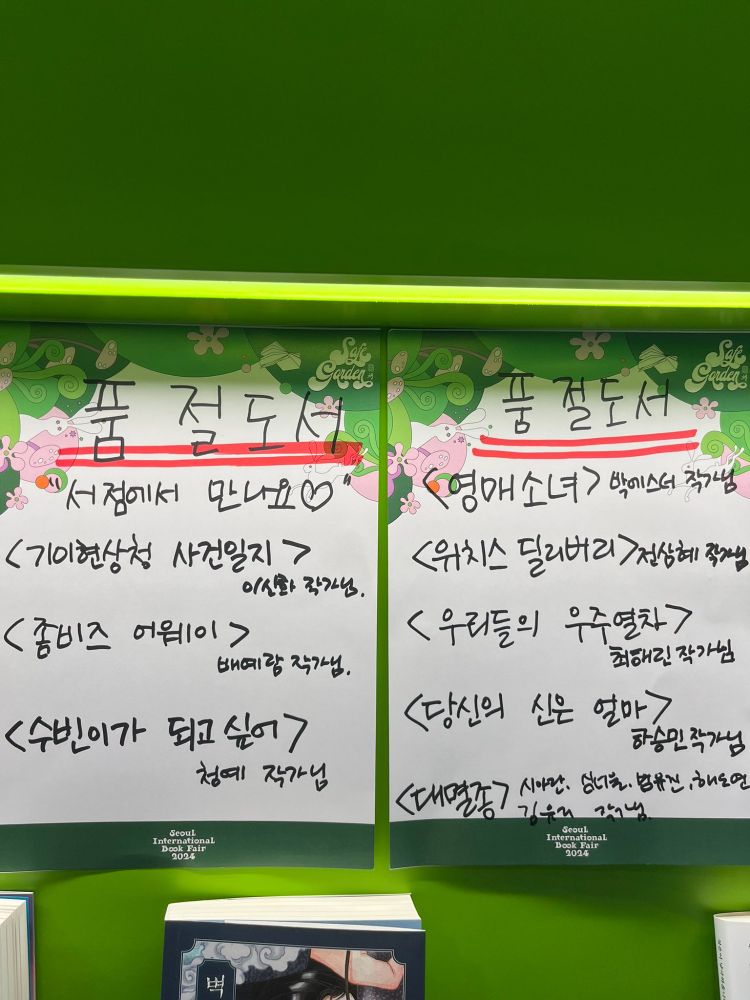 Safe Garden
품절도서
"서점에서 만나요♡"
<기이현상청 사건일지>
이산화 작가님.
<좀비즈 어웨이>
배예람 작가님.
<수빈이가 되고 싶어>
청예 작가님
Seoul
International
Book Fair
2024
Safe Garden
품절도서
<영매소녀> 박에스더 작가님
<위치스 딜리버리> 전삼혜 작가님
<우리들의 우주열차>
최해린 작가님
<당신의 신은 얼마>
하승민 작가님
<대멸종> 시아란, 심너울, 범유진, 해도연
강유리 작가님.
Seoul
International
Book Fair
2024
벽